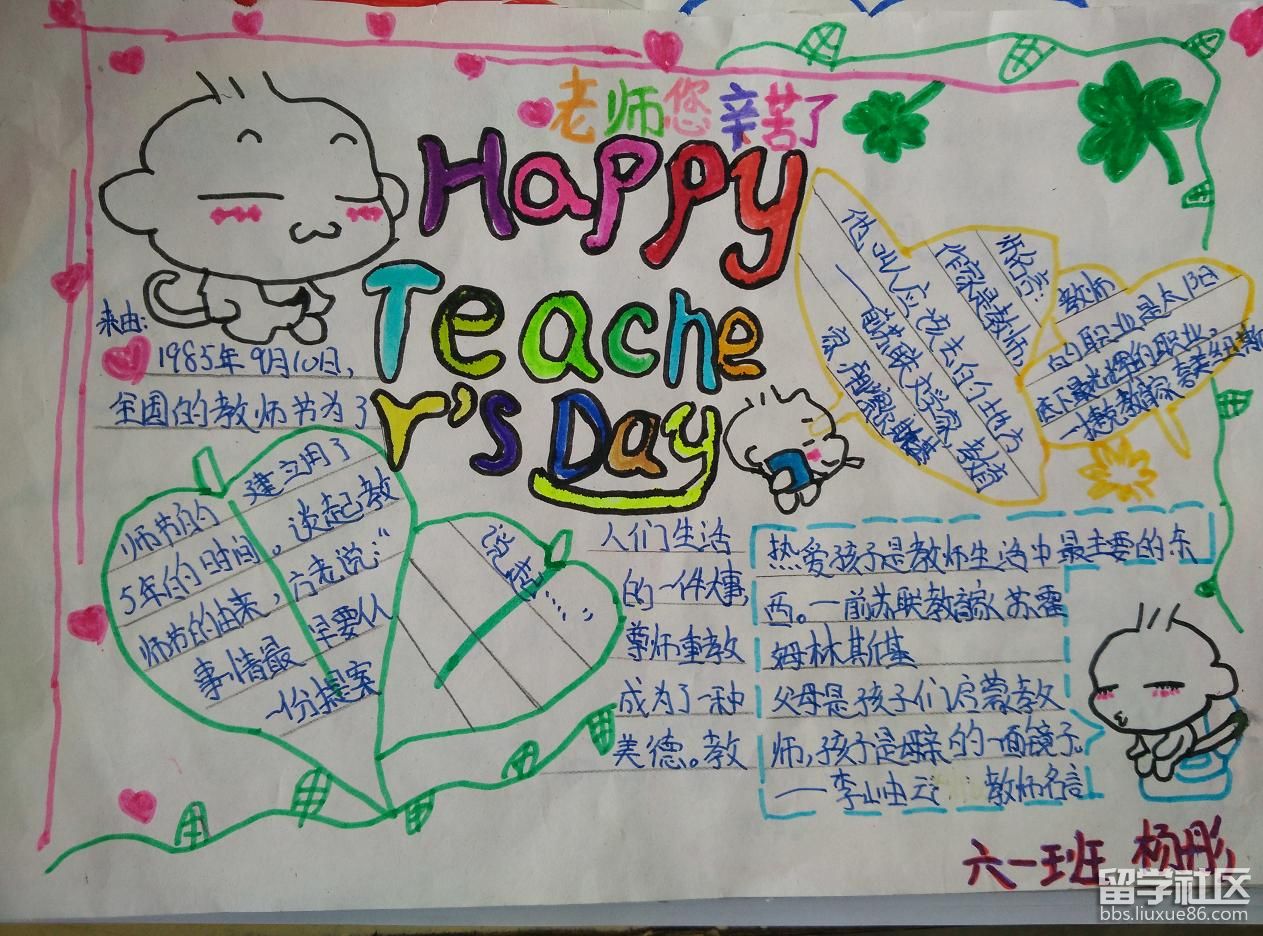 老师您辛苦了
Happy
Teache
r's Day
来由:
1985年9月10日,
全国的教师节为了
人们生活
的一件大事,
尊师重教
成为了一种
美德。教
师节的建立用了
5年的时间,谈起教
师节的由来,方老说:“
事情最早要从
一份提案
说起……”
师名言:
作家是教师,
他叫人应该去的地方
——前苏联文学家 教育
教师
的职业是太阳
底下最光辉的职业。
热爱孩子是教师生活中最主要的东
西。——前苏联教育家 苏霍
姆林斯基
父母是孩子们启蒙教
师,孩子是母亲的一面镜子。
教师名言
六一班 杨彤
留学社区
bbs.liuxue86.com